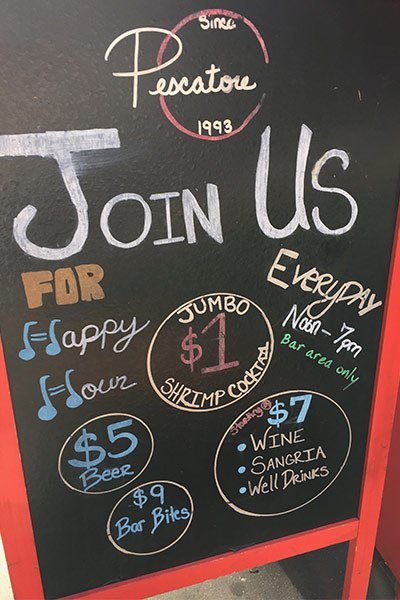 Since
Pescatore
1993
JOIN US
FOR
Happy
Hour
EVERYDAY
Noon - 7pm
Bar area only
JUMBO
$1
SHRIMP COCKTAIL
$5
Beer
$9
Bar Bites
Starting @
$7
• WINE
• SANGRIA
• Well DRINKS